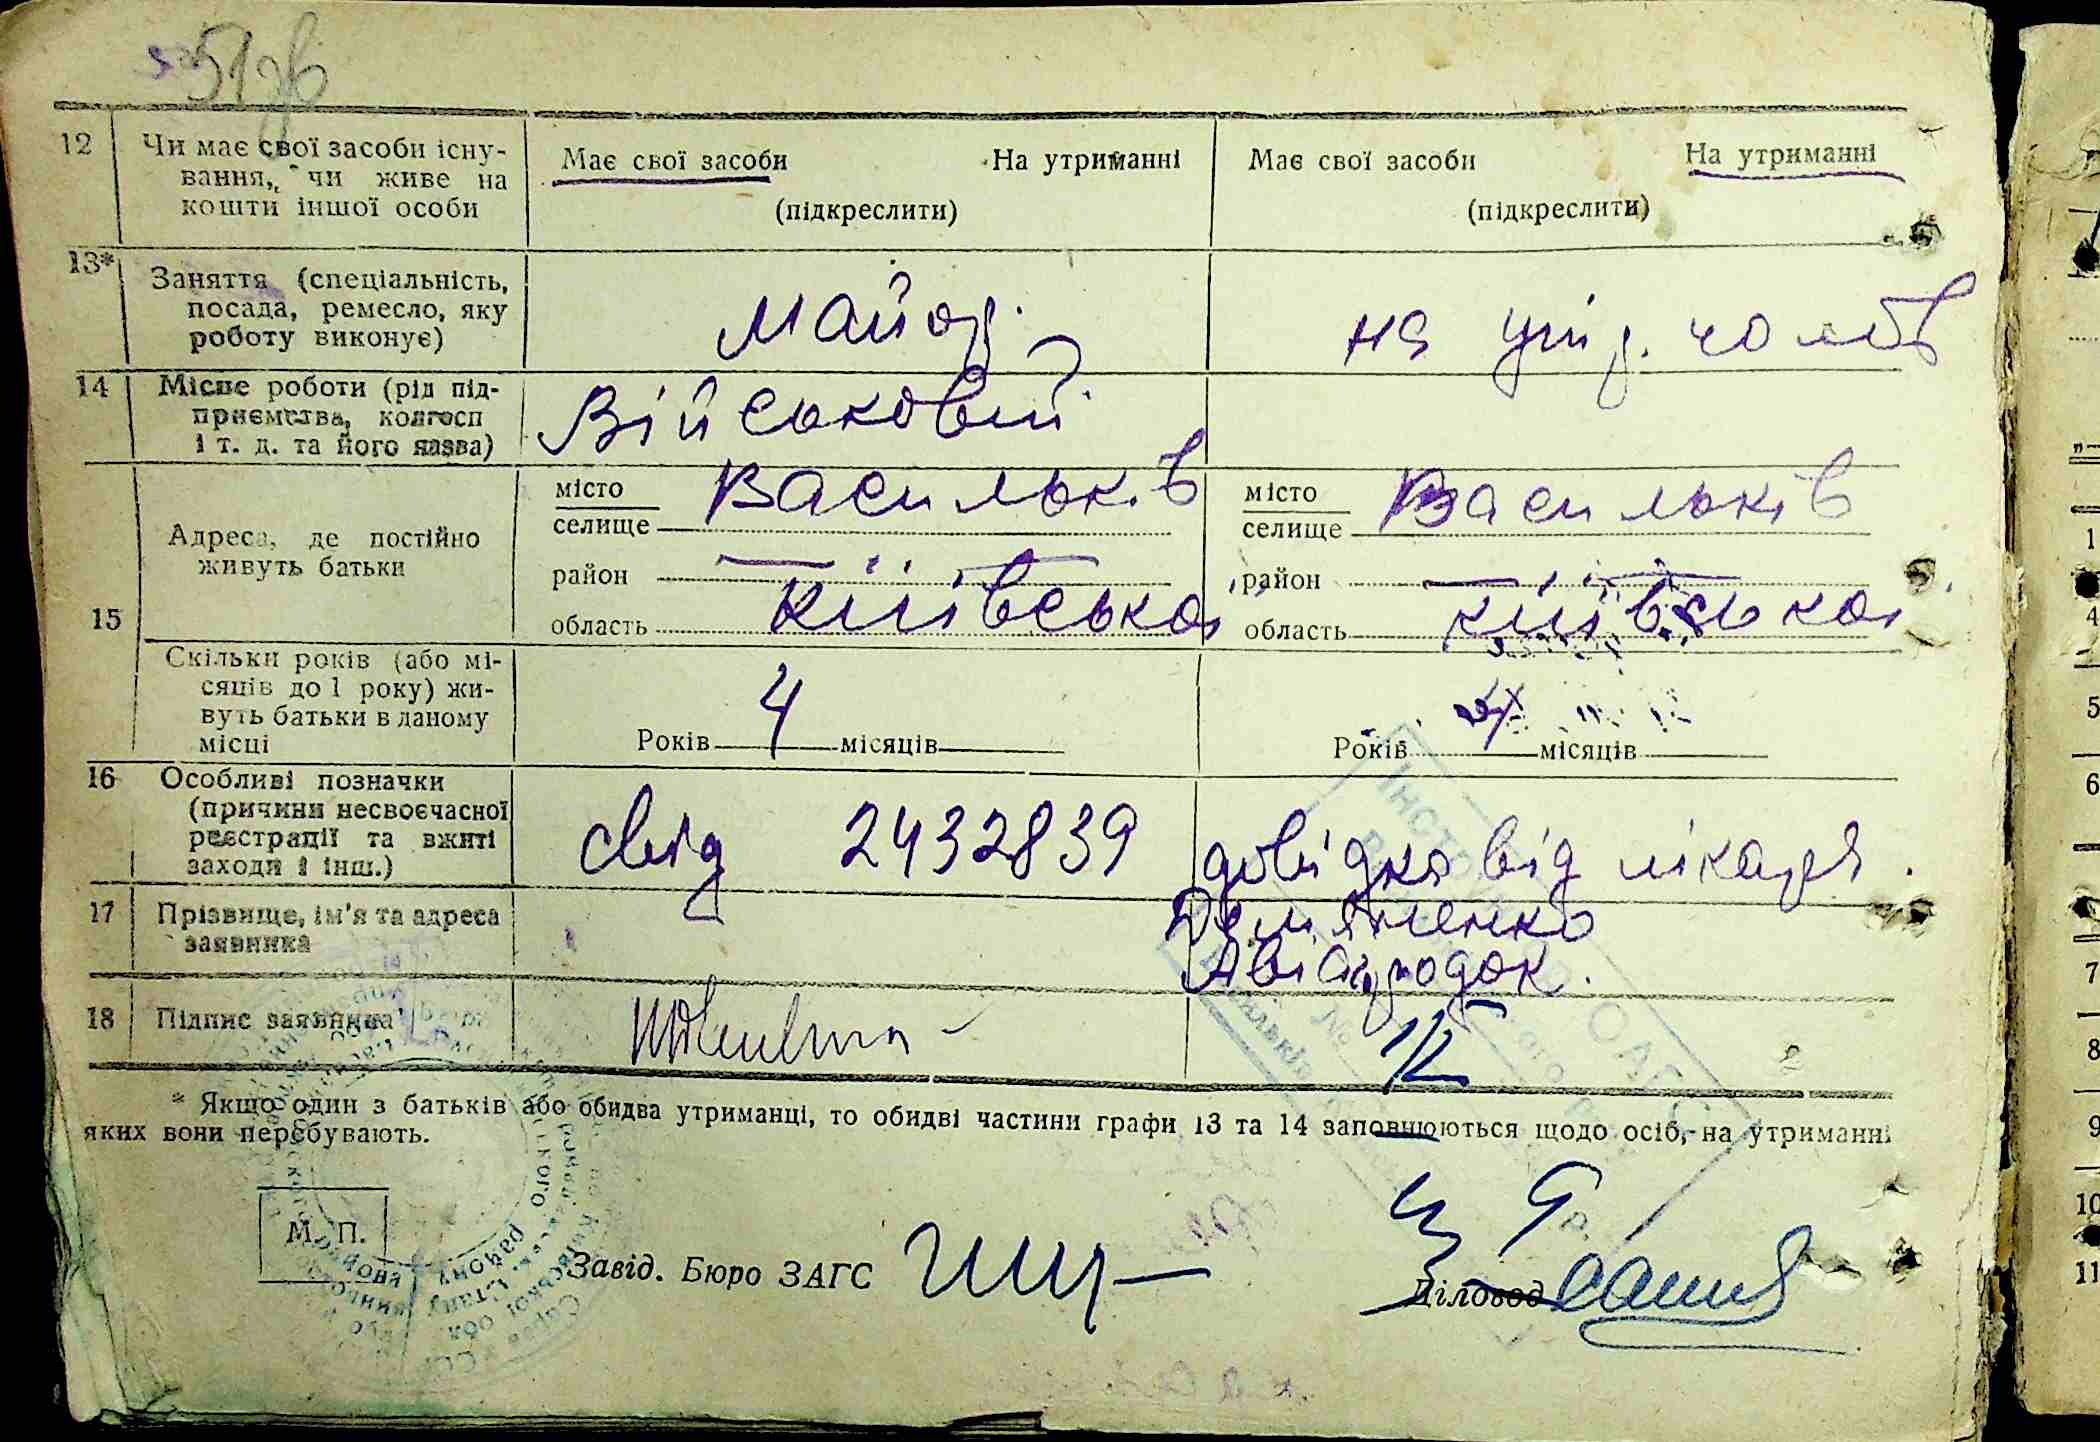 12 Чи має свої засоби існу- Має свої засоби На утриманні Має свої засоби На утриманні
вання, чи живе на
кошти іншої особи (підкреслити) (підкреслити)
13* Заняття (спеціальність,
посада, ремесло, яку майор на утр. чолов
роботу виконує)
14 Місце роботи (рід під-
приємства, колгосп Військовий
і т. д. та його назва)
місто Васильків місто Васильків
селище селище
Адреса, де постійно
живуть батьки район — район —
15 область Київська область Київська
Скільки років (або мі-
сяців до 1 року) жи-
вуть батьки в даному
місці Років 4 місяців Років 4 місяців
16 Особливі позначки
(причини несвоєчасної
реєстрації та вжиті свід 2432839 довідка від лікаря
заходи і інш.)
17 Прізвище, ім'я та адреса Дем'яненко
заявника Авіагородок.
18 Підпис заявника 1/2
* Якщо один з батьків або обидва утриманці, то обидві частини графи 13 та 14 заповнюються щодо осіб, на утриманні
яких вони перебувають.
М. П.
Завід. Бюро ЗАГС Діловод